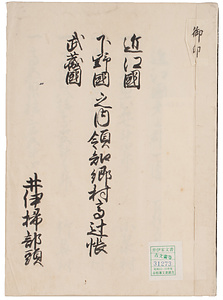 御印
近江國
下野國之内領知郷村高辻帳
武蔵國
井伊掃部頭
31273